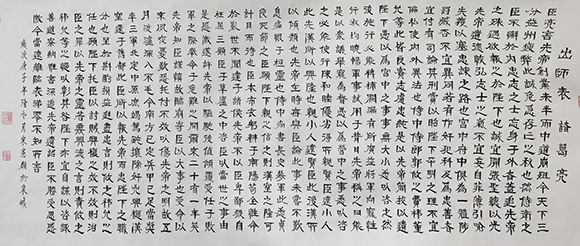 出師表 諸葛亮
臣亮言先帝創業未半而中道崩殂今天下三
分益州疲弊此誠危急存亡之秋也然侍衛之
臣不懈於內忠志之士忘身于外者蓋追先帝之
殊遇欲報之於陛下也誠宜開張聖聽以光
先帝遺德恢弘志士之氣不宜妄自菲薄引喻
失義以塞忠諫之路也宮中府中俱為一體陟
罰臧否不宜異同若有作奸犯科及為忠善者
宜付有司論其刑賞以昭陛下平明之理不宜
偏私使內外異法也侍中侍郎郭攸之費禕董
允等此皆良實志慮忠純是以先帝簡拔以遺
陛下愚以為宮中之事事無大小悉以咨之然後
施行必能裨補闕漏有所廣益將軍向寵性
行淑均曉暢軍事試用于昔日先帝稱之曰能
是以眾議舉寵為督愚以為營中之事悉以咨
之必能使行陣和睦優劣得所親賢臣遠小人
此先漢所以興隆也親小人遠賢臣此後漢所
以傾頹也先帝在時每與臣論此事未嘗不歎息
痛恨於桓靈也侍中尚書長史參軍此悉貞
良死節之臣願陛下親之信之則漢室之隆可
計日而待也臣本布衣躬耕于南陽苟全性命
於亂世不求聞達于諸侯先帝不以臣卑鄙猥自
枉屈三顧臣于草廬之中咨臣以當世之事由
是感激遂許先帝以驅馳後值傾覆受任于敗
軍之際奉命于危難之間爾來二十有一年矣
先帝知臣謹慎故臨崩寄臣以大事也受命以
來夙夜憂歎恐託付不效以傷先帝之明故五
月渡瀘深入不毛今南方已定兵甲已足當獎
率三軍北定中原庶竭駑鈍攘除奸凶興復漢
室還于舊都此臣所以報先帝而忠陛下之職
分也至於斟酌損益進盡忠言則攸之禕允之
任也願陛下託臣以討賊興復之效不效則治
臣之罪以告先帝之靈若無興德之言則責攸之
禕允等之慢以彰其咎陛下亦宜自謀以咨諏
善道察納雅言深追先帝遺詔臣不勝受恩感
激今當遠離臨表涕零不知所言
歲次庚子年